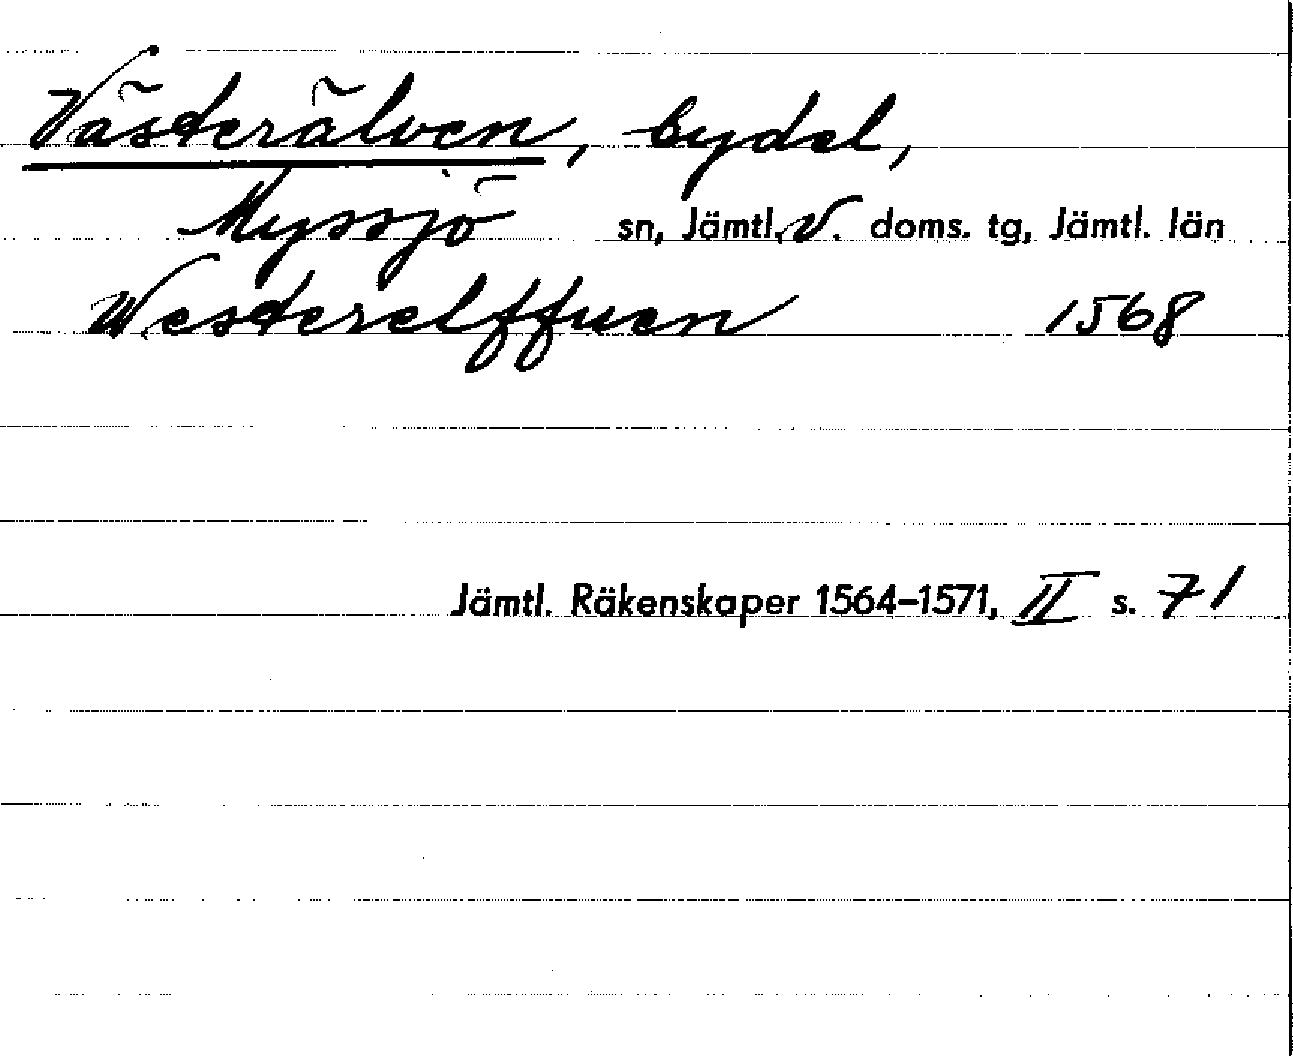 Västerälven, bydel,
Myssjö sn, Jämtl. V. doms. tg, Jämtl. län
Westerelffuen 1568
Jämtl. Räkenskaper 1564–1571, II s. 71